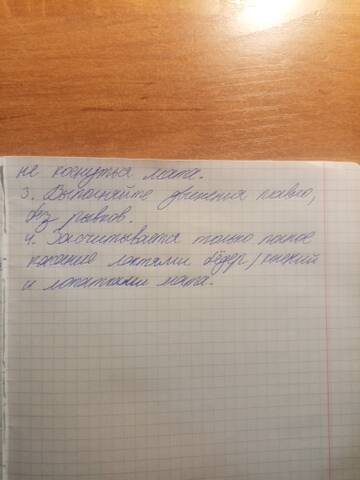 не коснуться мата.
3. Выполняйте движения плавно,
без рывков.
4. Засчитывается только полное
касание локтями бёдер/коленей
и лопатками мата.